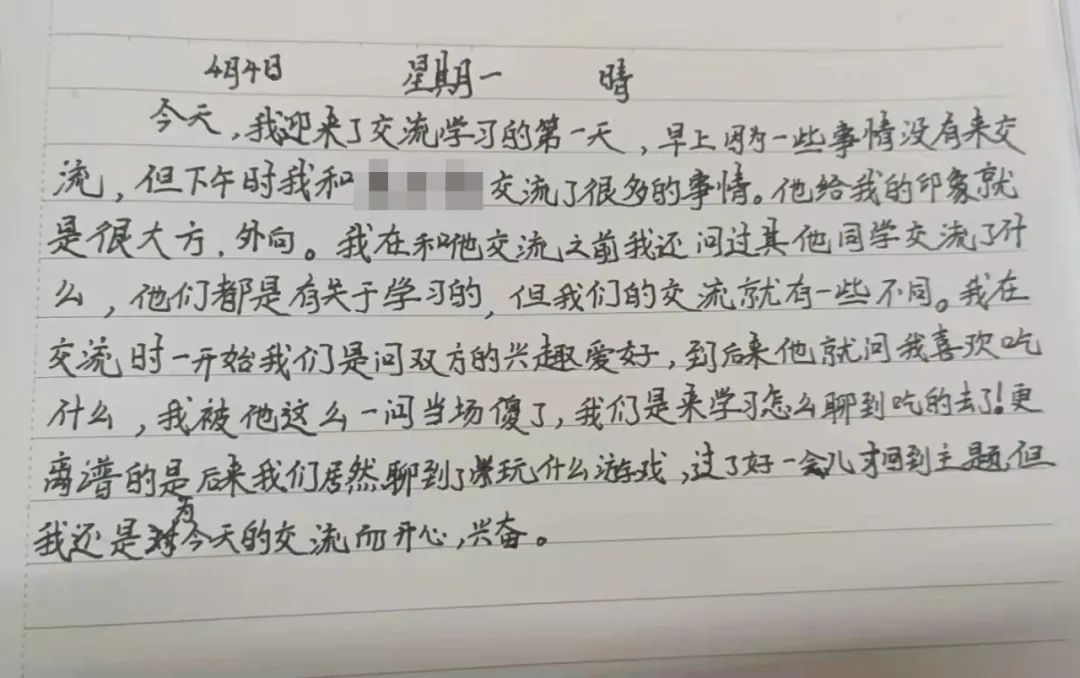 4月4日 星期一 晴
今天,我迎来了交流学习的第一天,早上因为一些事情没有来交
流,但下午时我和 交流了很多的事情。他给我的印象就
是很大方,外向。我在和他交流之前我还问过其他同学交流了什
么,他们都是有关于学习的,但我们的交流就有一些不同。我在
交流时一开始我们是问双方的兴趣爱好,到后来他就问我喜欢吃
什么,我被他这么一问当场傻了,我们是来学习怎么聊到吃的去了!更
离谱的是后来我们居然聊到了玩什么游戏,过了好一会儿才回到主题,但
我还是为今天的交流而开心,兴奋。